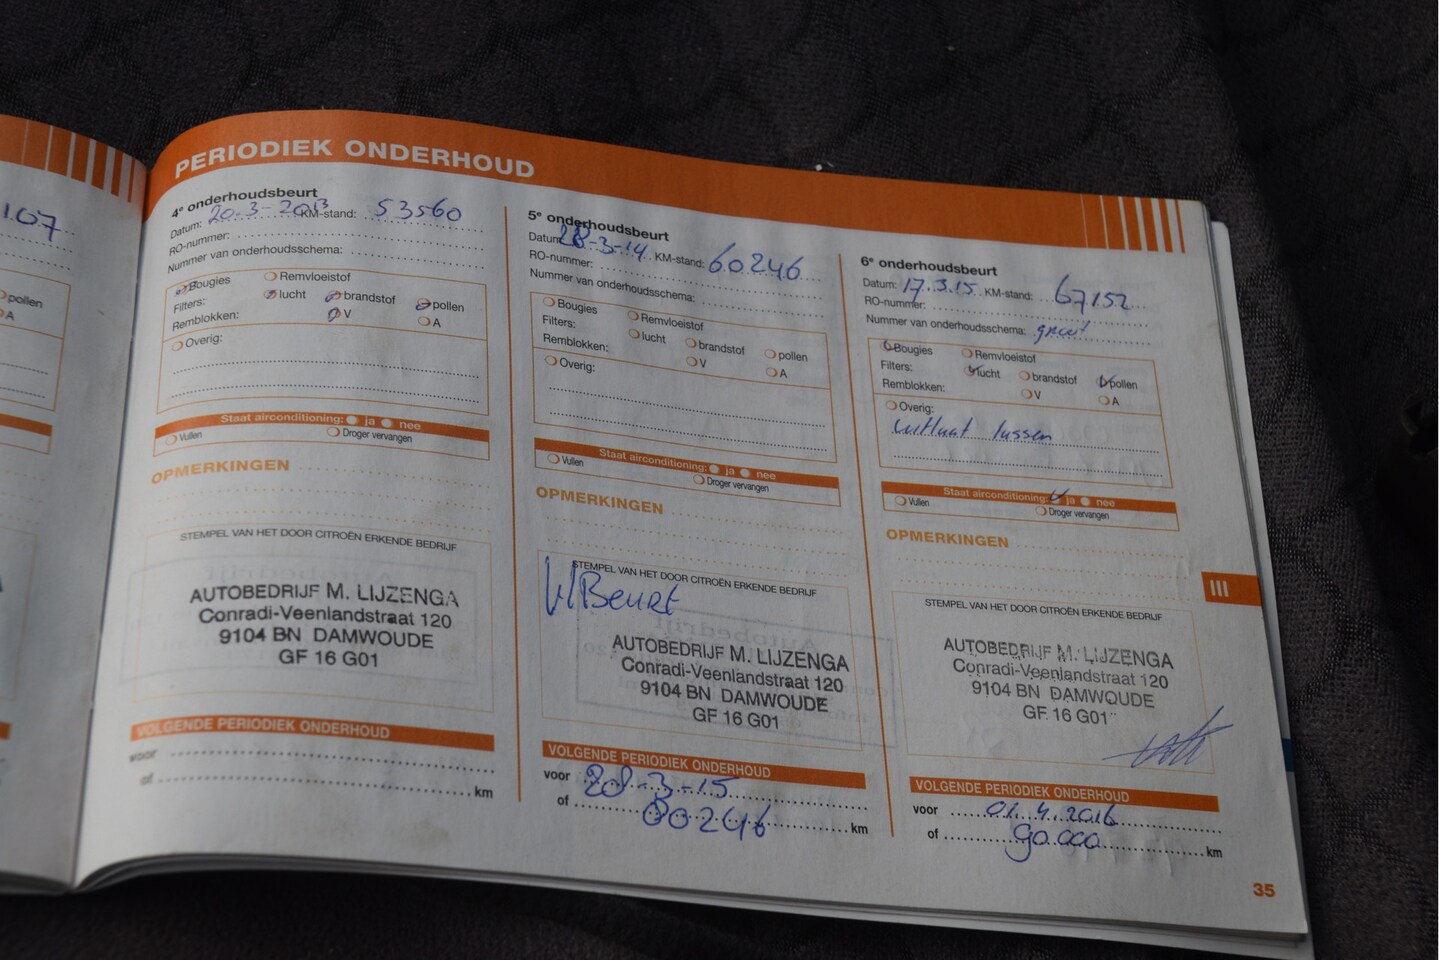 107
pollen
A
PERIODIEK ONDERHOUD
4e onderhoudsbeurt
Datum: 20-3-2013 KM-stand: 53560
RO-nummer:
Nummer van onderhoudsschema:
Bougies Remvloeistof
Filters: lucht brandstof pollen
Remblokken: V A
Overig:
Staat airconditioning: ja nee
Vullen Droger vervangen
OPMERKINGEN
STEMPEL VAN HET DOOR CITROËN ERKENDE BEDRIJF
AUTOBEDRIJF M. LIJZENGA
Conradi-Veenlandstraat 120
9104 BN DAMWOUDE
GF 16 G01
VOLGENDE PERIODIEK ONDERHOUD
voor
of km
5e onderhoudsbeurt
Datum: 28-3-14 KM-stand: 60246
RO-nummer:
Nummer van onderhoudsschema:
Bougies Remvloeistof
Filters: lucht brandstof pollen
Remblokken: V A
Overig:
Staat airconditioning: ja nee
Vullen Droger vervangen
OPMERKINGEN
STEMPEL VAN HET DOOR CITROËN ERKENDE BEDRIJF
Beurt
AUTOBEDRIJF M. LIJZENGA
Conradi-Veenlandstraat 120
9104 BN DAMWOUDE
GF 16 G01
VOLGENDE PERIODIEK ONDERHOUD
voor 28-3-15
of 80246 km
6e onderhoudsbeurt
Datum: 17.3.15 KM-stand: 67152
RO-nummer:
Nummer van onderhoudsschema: groot
Bougies Remvloeistof
Filters: lucht brandstof pollen
Remblokken: V A
Overig:
uitlaat tussen
Staat airconditioning: ja nee
Vullen Droger vervangen
OPMERKINGEN
STEMPEL VAN HET DOOR CITROËN ERKENDE BEDRIJF
AUTOBEDRIJF M. LIJZENGA
Conradi-Veenlandstraat 120
9104 BN DAMWOUDE
GF 16 G01
VOLGENDE PERIODIEK ONDERHOUD
voor 01.4.2016
of 90.000 km
III
35